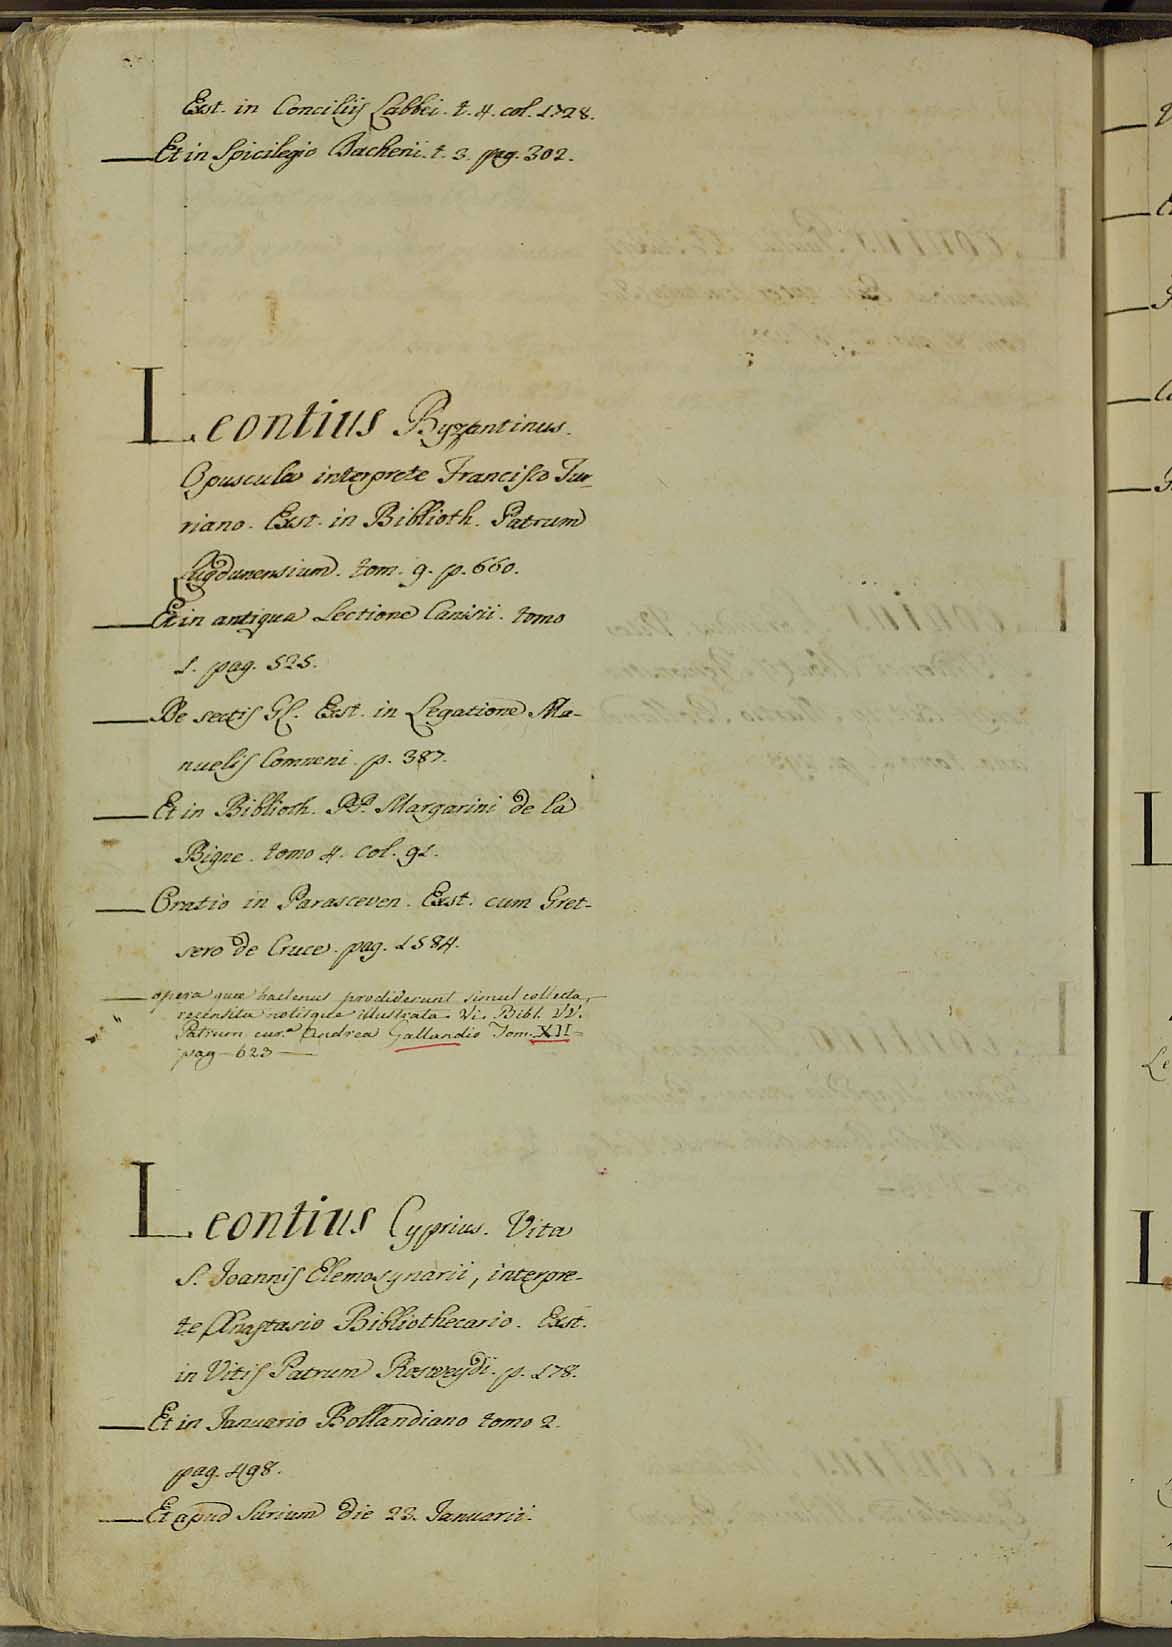 Exst. in Conciliis Labbei. t. 4. col. 1728.
Et in Spicilegio Dacherii. t. 3. pag. 302.
Leontius Byzantinus.
Opuscula interprete Francisco Tur-
riano. Exst. in Biblioth. Patrum
Lugdunensium. tom. 9. p. 660.
Et in antiqua Lectione Canisii. tomo
1. pag. 525.
De sectis Gl. Exst. in Legatione Ma-
nuelis Comneni. p. 387.
Et in Biblioth. PP. Margarini de la
Bigne. tomo 4. col. 91.
Oratio in Parasceven. Exst. cum Gret-
sero de Cruce. pag. 1584.
opera quæ hactenus prodiderunt simul collecta,
recensita notisque illustrata. Vi. Bibl. VV.
Patrum cur.ᵃ Andrea Gallandio Tom. XII
pag - 623
Leontius Cyprius. Vita
S. Joannis Elemosynarii, interpre-
te Anastasio Bibliothecario. Exst.
in Vitis Patrum Rosweydi. p. 178.
Et in Januario Bollandiano tomo 2.
pag. 498.
Et apud Surium die 23. Januarii.